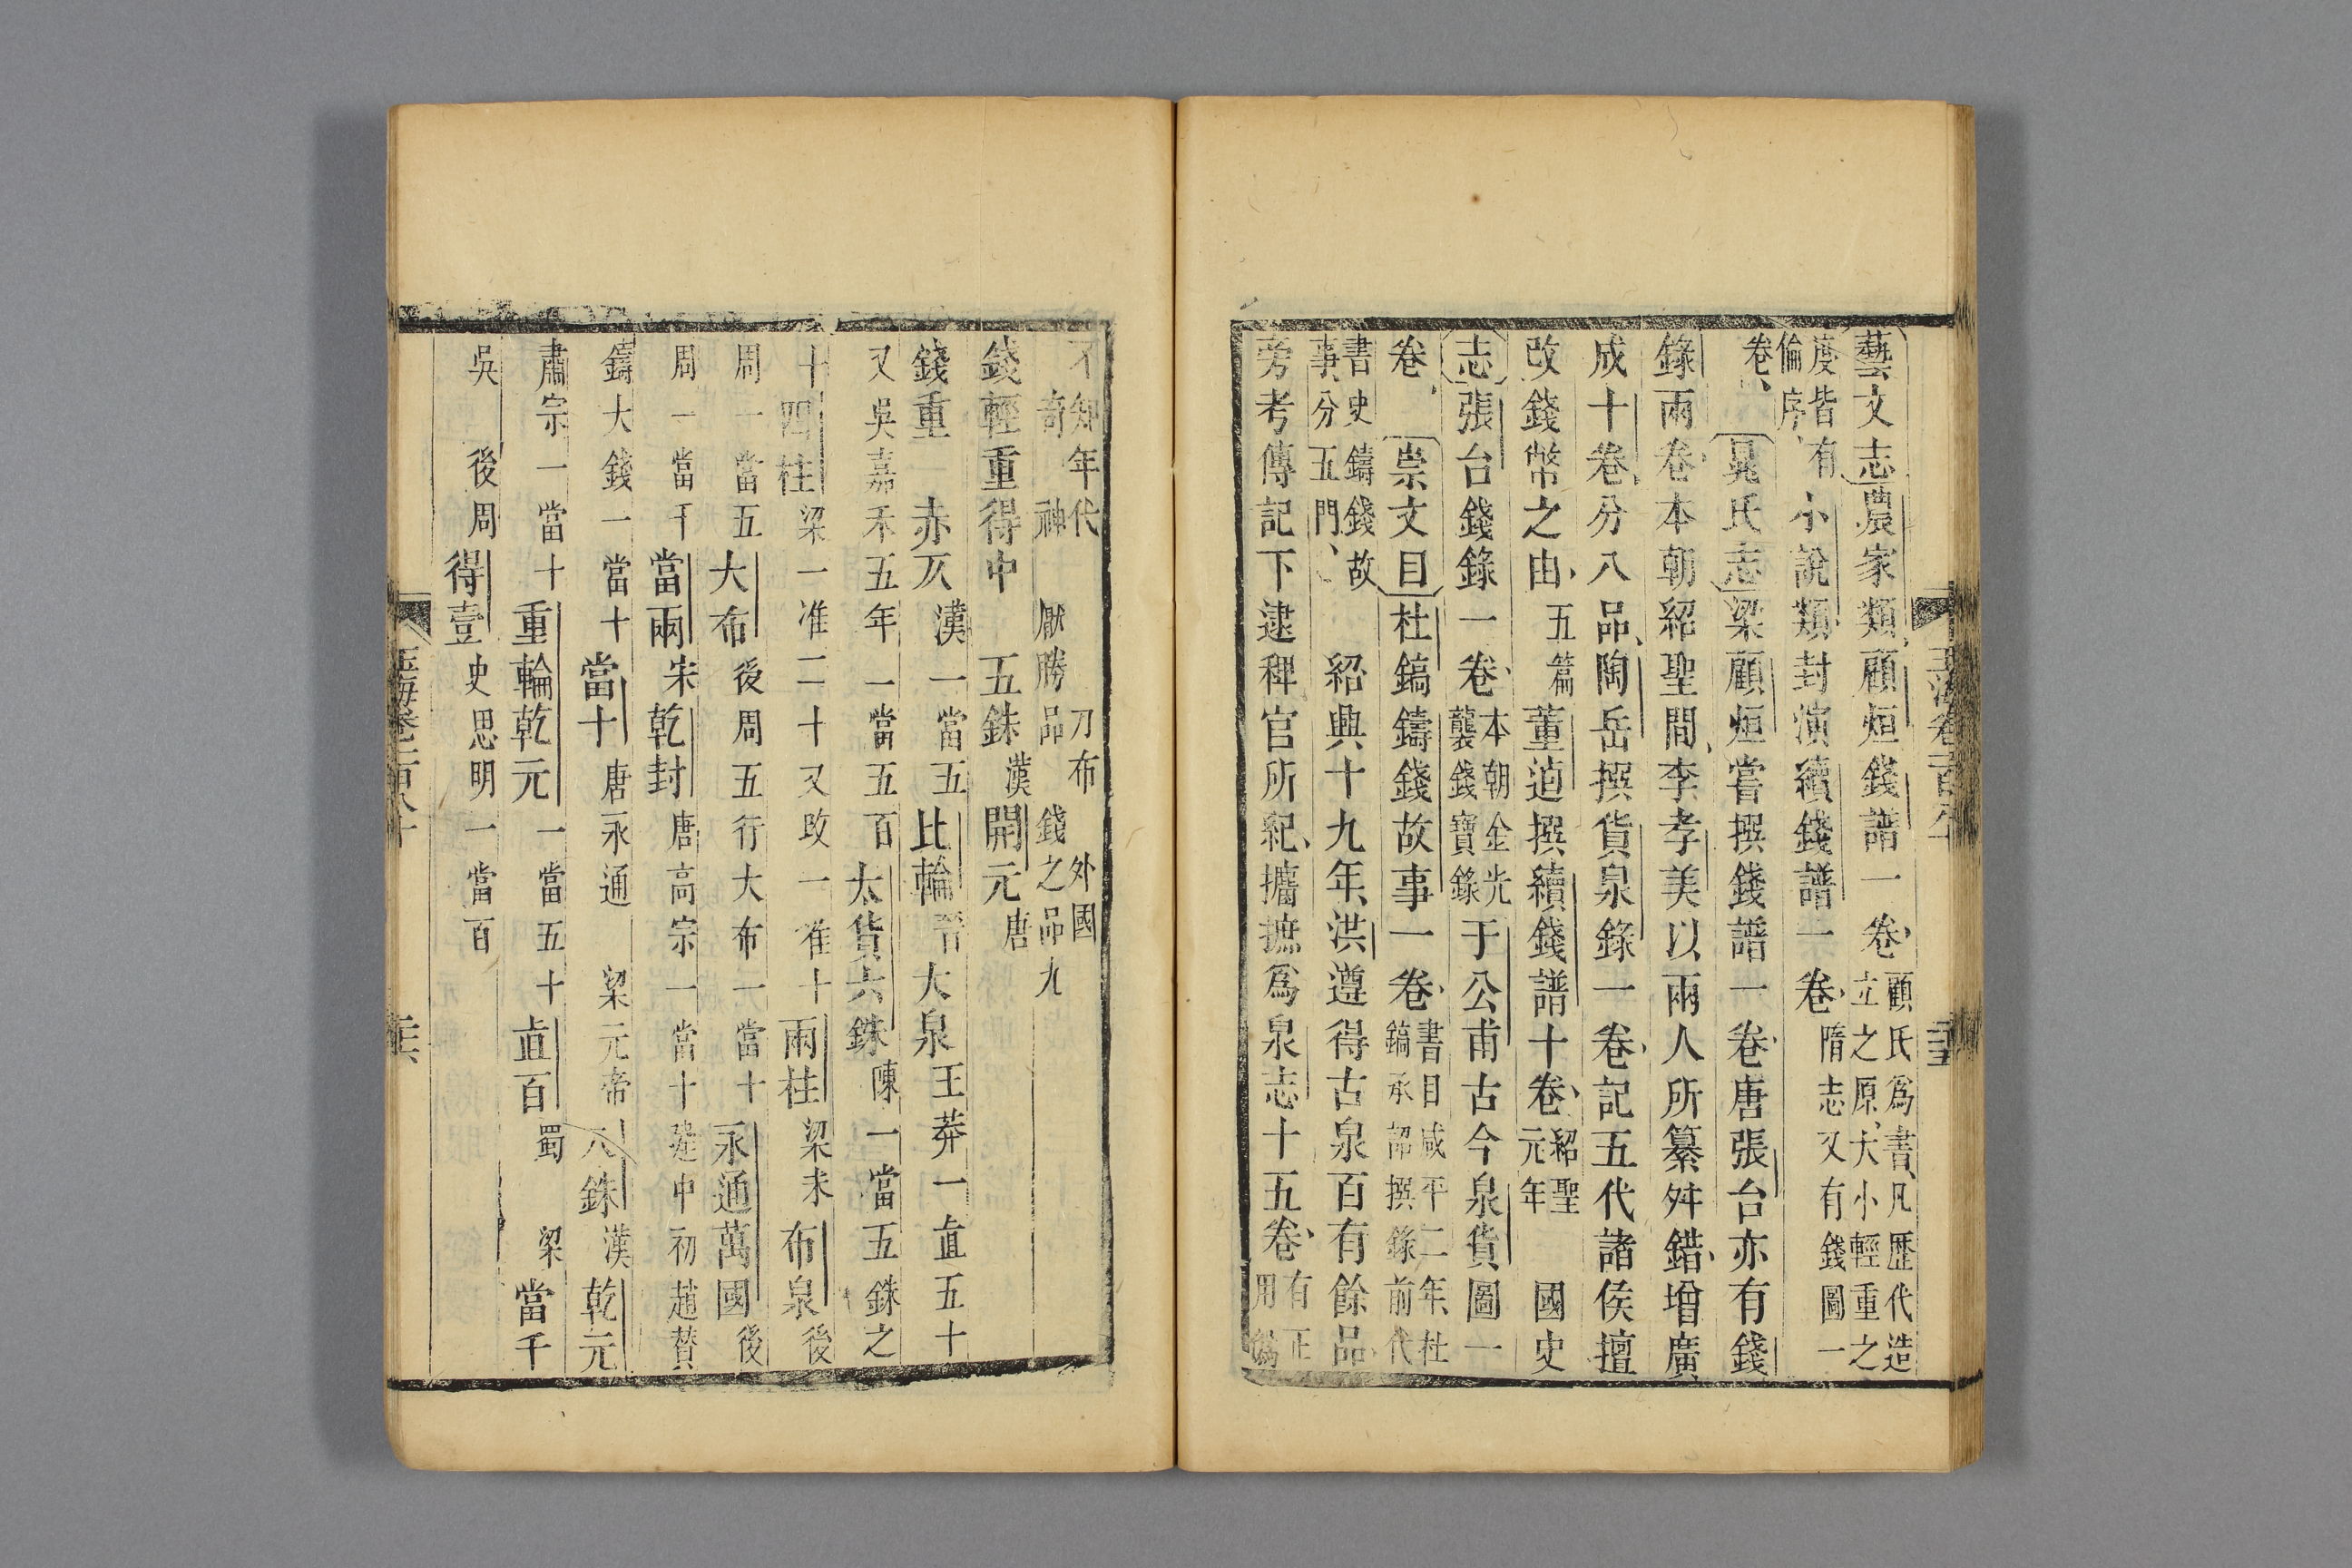 藝文志農家類顧烜錢譜一卷顧氏爲書凡歷代造立之原大小輕重之
度皆有倫序小說類封演續錢譜一卷隋志又有錢圖一
卷晁氏志梁顧烜嘗撰錢譜一卷唐張台亦有錢
錄兩卷本朝紹聖間李孝美以兩人所纂舛錯增廣
成十卷分八品陶岳撰貨泉錄一卷記五代諸侯擅
改錢幣之由五篇董逌撰續錢譜十卷紹聖元年國史
志張台錢錄一卷本朝金光襲錢寶錄于公甫古今泉貨圖一
卷崇文目杜鎬鑄錢故事一卷書目咸平二年杜鎬承詔撰錄前代
書史鑄錢故事分五門紹興十九年洪遵得古泉百有餘品
旁考傳記下逮稗官所紀攟摭爲泉志十五卷有正用僞
玉海卷一百八十
不知年代刀布外國奇神厭勝品錢之品九
錢輕重重得中五銖漢開元唐
錢重赤仄漢一當五比輪晉大泉王莽一直五十
又吳嘉禾五年一當五百太貨六銖陳一當五銖之
十四柱梁一准二十又改一准十兩柱梁末布泉後
周一當五大布後周五行大布一當十永通萬國後
周一當千當兩宋乾封唐高宗一當十建中初趙贊
鑄大錢一當十當十唐永通梁元帝八銖漢乾元
肅宗一當十重輪乾元一當五十直百蜀梁當千
吳後周得壹史思明一當百
玉海卷一百八十